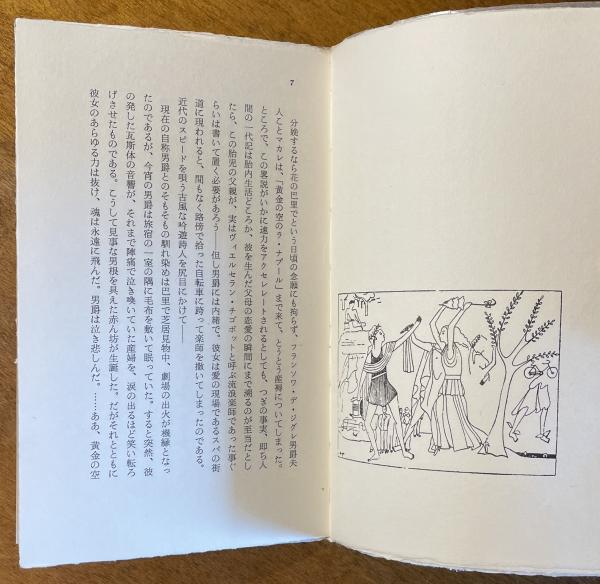 7
分娩するなら花の巴里でという日頃の念願にも拘らず、フランソワ・デ・ジグレ男爵夫
人ことマカレは、「黄金の空のラ・ナプール」まで来て、とうとう産褥についてしまった。
ところで、この異説がいかに速力をアクセレレートされるとしても、つぎの事実、即ち人
間の一代記は胎内生活どころか、彼を生んだ父母の恋愛の瞬間にまで溯るのが至当だとし
たら、この胎児の父親が、実はヴィエルセラン・チゴボットと呼ぶ流浪楽師であった事ぐ
らいは書いて置く必要があろう——但し男爵には内緒で、彼女は愛の現場であるスパの街
道に現われると、間もなく路傍で拾った自転車に跨って楽師を撒いてしまったのである。
近代のスピードを唄う古風な吟遊詩人を尻目にかけて——
現在の自称男爵とのそもそもの馴れ染めは巴里で芝居見物中、劇場の出火が機縁となっ
たのであるが、今宵の男爵は旅宿の一室の隅に毛布を敷いて眠っていた。すると突然、彼
の発した瓦斯体の音響が、それまで陣痛で泣き喚いていた産婦を、涙の出るほど笑い転ろ
げさせたものである。こうして見事な男根を具えた赤ん坊が生誕した。だがそれとともに
彼女のあらゆる力は抜け、魂は永遠に飛んだ。男爵は泣き悲しんだ。……ああ、黄金の空